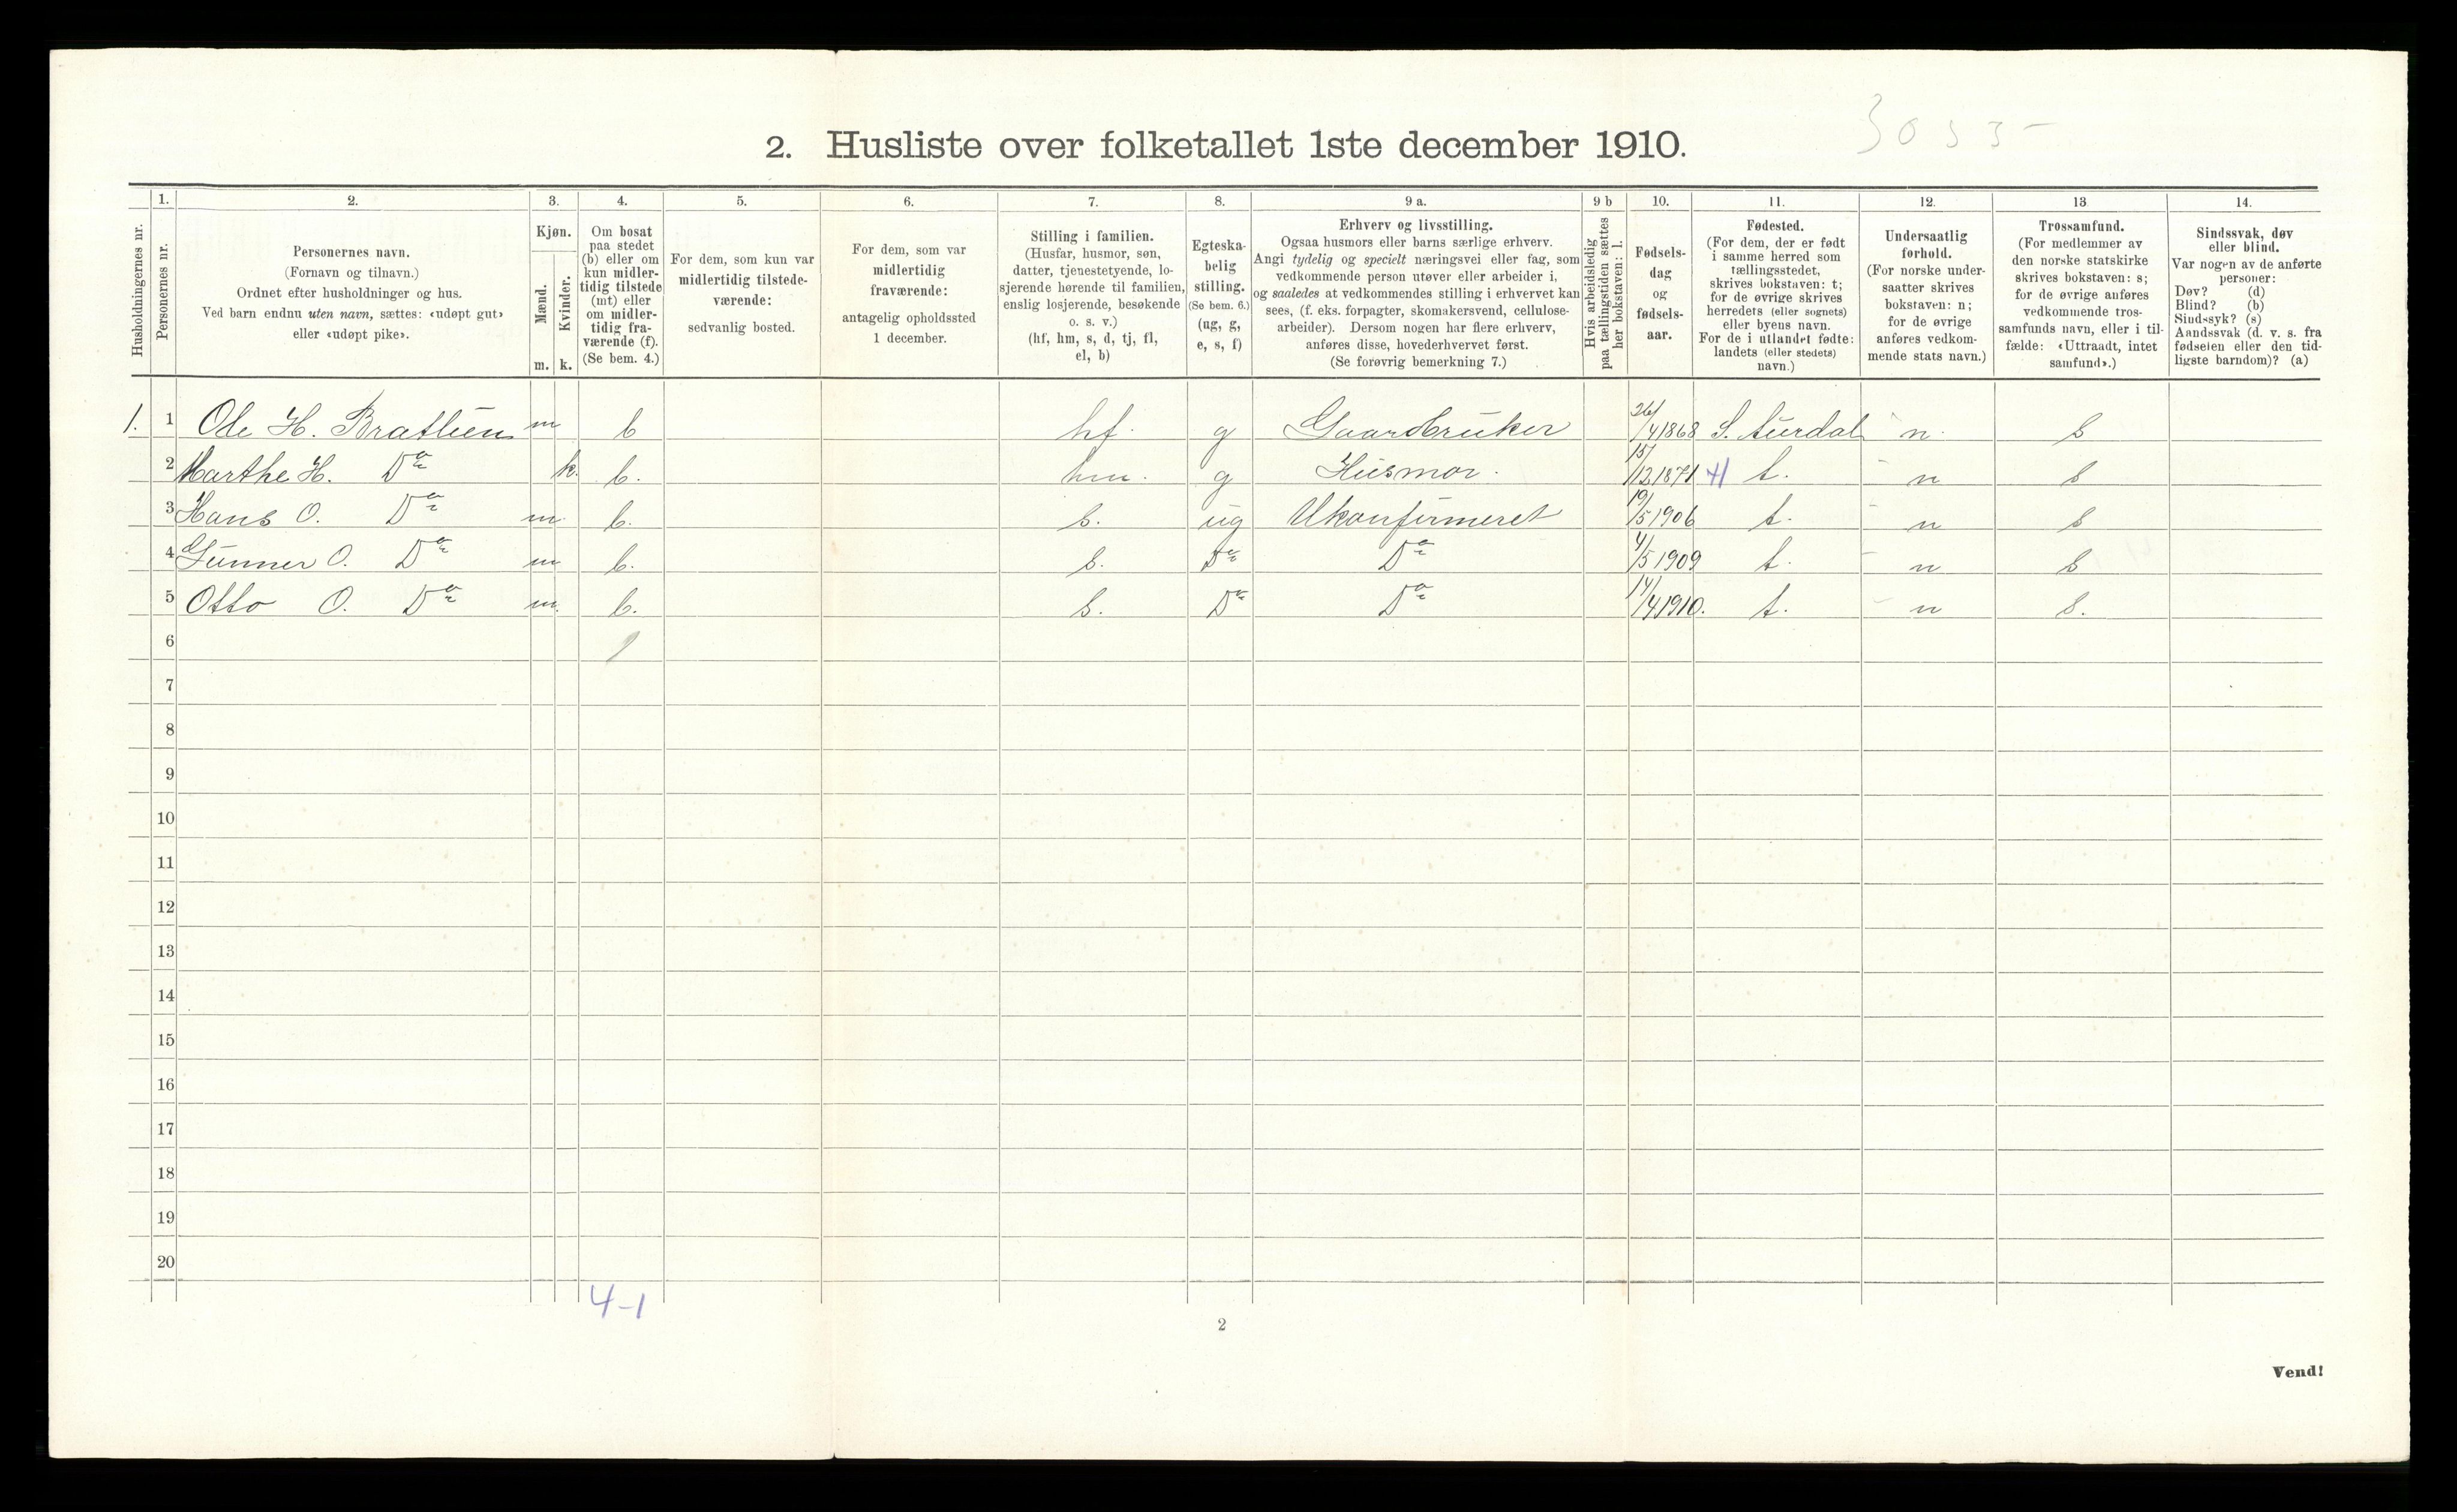 3035-
2. Husliste over folketallet 1ste december 1910.
Husholdningernes nr.
1.
Personernes nr.
2.
Personernes navn.
(Fornavn og tilnavn.)
Ordnet efter husholdninger og hus.
Ved barn endnu uten navn, sættes: «udøpt gut»
eller «udøpt pike».
3.
Kjøn.
Mænd.
Kvinder.
m. k.
4.
Om bosat
paa stedet
(b) eller om
kun midler-
tidig tilstede
(mt) eller
om midler-
tidig fra-
værende (f).
(Se bem. 4.)
5.
For dem, som kun var
midlertidig tilstede-
værende:
sedvanlig bosted.
6.
For dem, som var
midlertidig
fraværende:
antagelig opholdssted
1 december.
7.
Stilling i familien.
(Husfar, husmor, søn,
datter, tjenestetyende, lo-
sjerende hørende til familien,
enslig losjerende, besøkende
o. s. v.)
(hf, hm, s, d, tj, fl,
el, b)
8.
Egteska-
belig
stilling.
(Se bem. 6.)
(ug, g,
e, s, f)
9 a.
Erhverv og livsstilling.
Ogsaa husmors eller barns særlige erhverv.
Angi tydelig og specielt næringsvei eller fag, som
vedkommende person utøver eller arbeider i,
og saaledes at vedkommendes stilling i erhvervet kan
sees, (f. eks. forpagter, skomakersvend, cellulose-
arbeider). Dersom nogen har flere erhverv,
anføres disse, hovederhvervet først.
(Se forøvrig bemerkning 7.)
9 b
Hvis arbeidsledig
paa tællingstiden sættes
her bokstaven: l.
10.
Fødsels-
dag
og
fødsels-
aar.
11.
Fødested.
(For dem, der er født
i samme herred som
tællingsstedet,
skrives bokstaven: t;
for de øvrige skrives
herredets (eller sognets)
eller byens navn.
For de i utlandet fødte:
landets (eller stedets)
navn.)
12.
Undersaatlig
forhold.
(For norske under-
saatter skrives
bokstaven: n;
for de øvrige
anføres vedkom-
mende stats navn.)
13
Trossamfund.
(For medlemmer av
den norske statskirke
skrives bokstaven: s;
for de øvrige anføres
vedkommende tros-
samfunds navn, eller i til-
fælde: «Uttraadt, intet
samfund».)
14.
Sindssvak, døv
eller blind.
Var nogen av de anførte
personer:
Døv? (d)
Blind? (b)
Sindssyk? (s)
Aandssvak (d. v. s. fra
fødselen eller den tid-
ligste barndom)? (a)
1. 1 Ole H. Bratlien m b hf. g Gaardbruker 26/4 1868 S. Aurdal n. s
2 Marthe H. Do k. b. hm. g Husmor. 15/12 1871 t. n s
3 Hans O. Do m. b. s. ug Ukonfirmeret 19/5 1906 t. n s
4 Gunner O. Do m b. s. Do Do 4/5 1909 t. n s
5 Otto O. Do m. b. s. Do Do 14/4 1910. t. n s.
6
7
8
9
10
11
12
13
14
15
16
17
18
19
20
4-1
2
Vend!